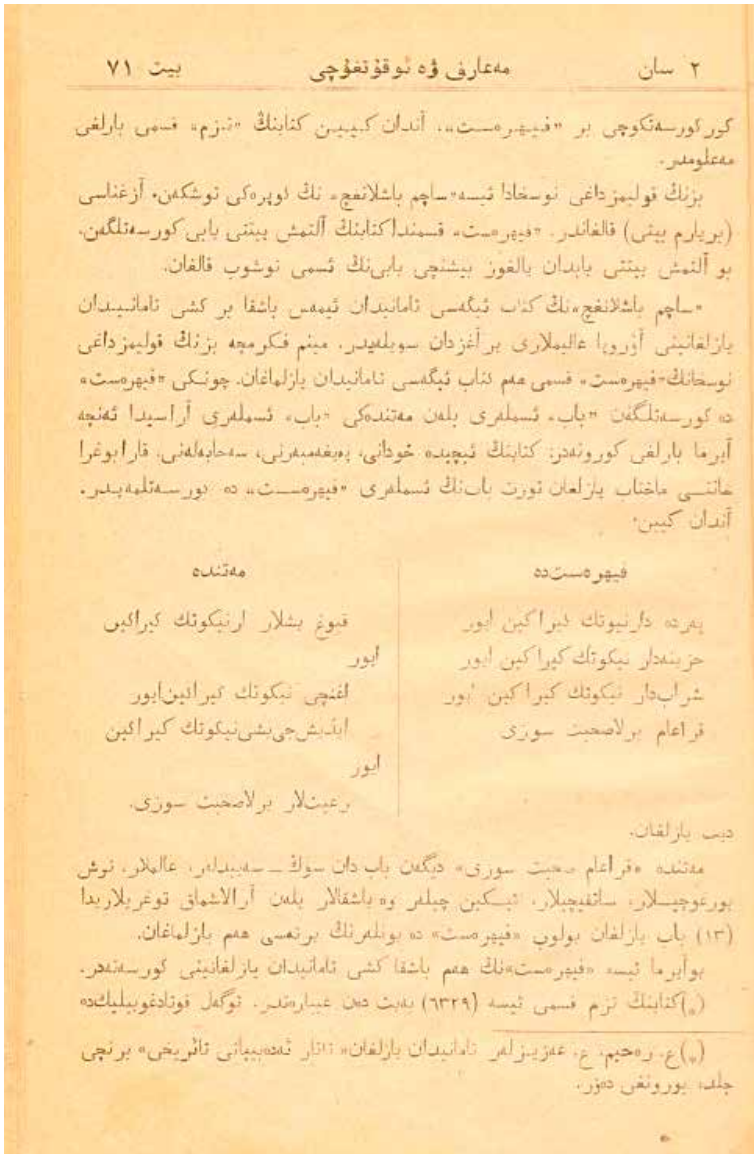 ٢ سان مەعارف ۋە ئوقۇتغۇچى بیت ٧١
كور كورسەتكوچى بر «فیهرەست»، آندان كیین كتابنڭ «نزم» قسمی بارلغی
مەعلومدر.
بزنڭ قولیمزداغی نوسخادا ئیسە «ساچم باشلانغچ» نڭ ئوپرەكی توشكەن. آزغناسی
(بریارم بیتی) قالغاندر. «فیهرەست» قسمنداكتابنڭ آلتمش ییتتی بابی كورسەتلگەن.
بو آلتمش ییتتی بابدان یالغوز بیشنچی بابی‌نڭ ئسمی توشوب قالغان.
«ساچم باشلانغچ»نڭ كتاب ئیگەسی تامانیدان ئیمەس باشقا بر كشی تامانیدان
یازلغانینی آؤروپا عالیملاری بر آغزدان سویلەیدر. مینم فكرمچە بزنڭ قولیمزداغی
نوسخانڭ «فیهرەست» قسمی هەم كتاب ئیگەسی تامانیدان یازلماغان. چونكی «فیهرەست»
دە كورسەتلگەن «باب» ئسملەری بلەن مەتندەكی «باب» ئسملەری آراسیدا ئەنچە
آیرما بارلغی كورونەدر: كتابنڭ ئیچیدە خودانی، پەیغەمبەرنی، سەحابەلەنی، قارا بوغرا
خاننی ماختاب یازلغان تورت باب‌نڭ ئسملەری «فیهرەست» دە كورسەتلمەیدر.
آندان كیین:
فیهرەست‌دە مەتندە
پەردە دارنیوتك كیراكین ایور قبوغ بشلار ارنیكوتك كیراكین
ایور
حزینەدار نیكوتك كیراكین ایور
شراب‌دار نیكوتك كیراكین ایور اغنچی نیكوتك كیراكین‌ایور
قراعام برلاصحبت سوزی ایدیش‌جی‌بشی‌نیكوتك كیراكین
ایور
رعیت‌لار برلاصحبت سوزی.
دیب یازلغان.
مەتندە «قراعام صحبت سوزی» دیگەن باب دان سوڭ ــ سەییدلەر، عالملار، توش
یورغوچیلار، ساتقیچیلار، ئیكین چیلەر وە باشقالار بلەن آرالاشماق توغریلاریدا
(١٣) باب یازلغان بولوب «فیهرەست» دە بونلەرنڭ برنەسی هەم یازلماغان.
بوآیرما ئیسە «فیهرەست»نڭ هەم باشقا كشی تامانیدان یازلغانینی كورسەتەدر.
(*)كتابنڭ نزم قسمی ئیسە (٦٣٢٩) بەیت دەن عیبارەتدر. توگەل قوتادغوبیلیك‌دە
(*)ع. رەحیم، ع. عەزیزلەر تامانیدان یازلغان «تاتار ئەدەبیاتی تائریخی» برنچی
جلد، بورونغی دەۋر.